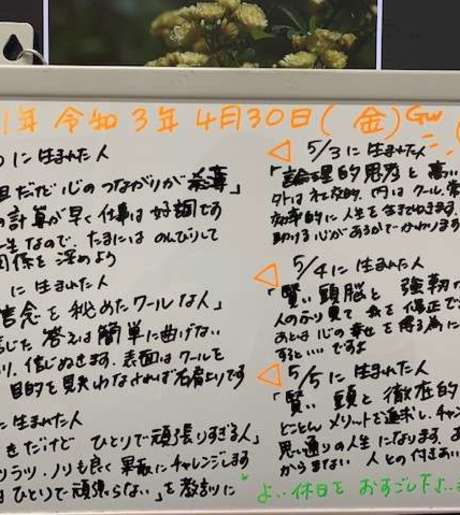 1年 令和3年 4月30日(金)GW
に生まれた人
だけど心のつながりが希薄」
の計算が早く仕事は好調です
なので、たまにはのんびりして
関係を深めよう
に生まれた人
信念を秘めたクールな人」
信じた答えは簡単に曲げない
信じぬきます。表面はクールを
目的を見失わなければ右肩上りです
に生まれた人
きだけど ひとりで頑張りすぎる人」
ノリも良く果敢にチャレンジします
はひとりで頑張らない」を教訓に
5/3に生まれた人
「論理的思考と高い
外は社交的、内はクール、常
効率的に人生を生きてゆきます。
助ける心があるかでかわります
5/4に生まれた人
「賢い頭脳と 強靭
人のふり見て 我を修正でき
あとは心の幸せを得る為に
すると…ですよ
5/5に生まれた人
「賢い頭と徹底的
とことんメリットを追求し、チャン
思い通りの人生になります。
からまない 人との付きあい
よい休日をおすごし下さいま